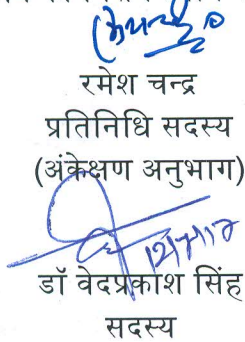 रमेश चन्द्र
प्रतिनिधि सदस्य
(अंकेक्षण अनुभाग)
डॉ वेदप्रकाश सिंह
सदस्य